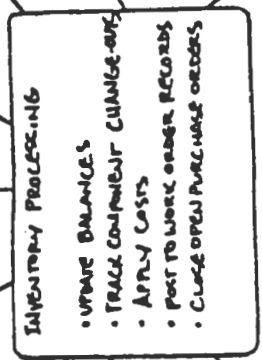 INVENTORY PROCESSING
• UPDATE BALANCES
• TRACK COMPONENT CHANGE-OUTS
• APPLY COSTS
• POST TO WORK ORDER RECORDS
• CLOSE OPEN PURCHASE ORDERS